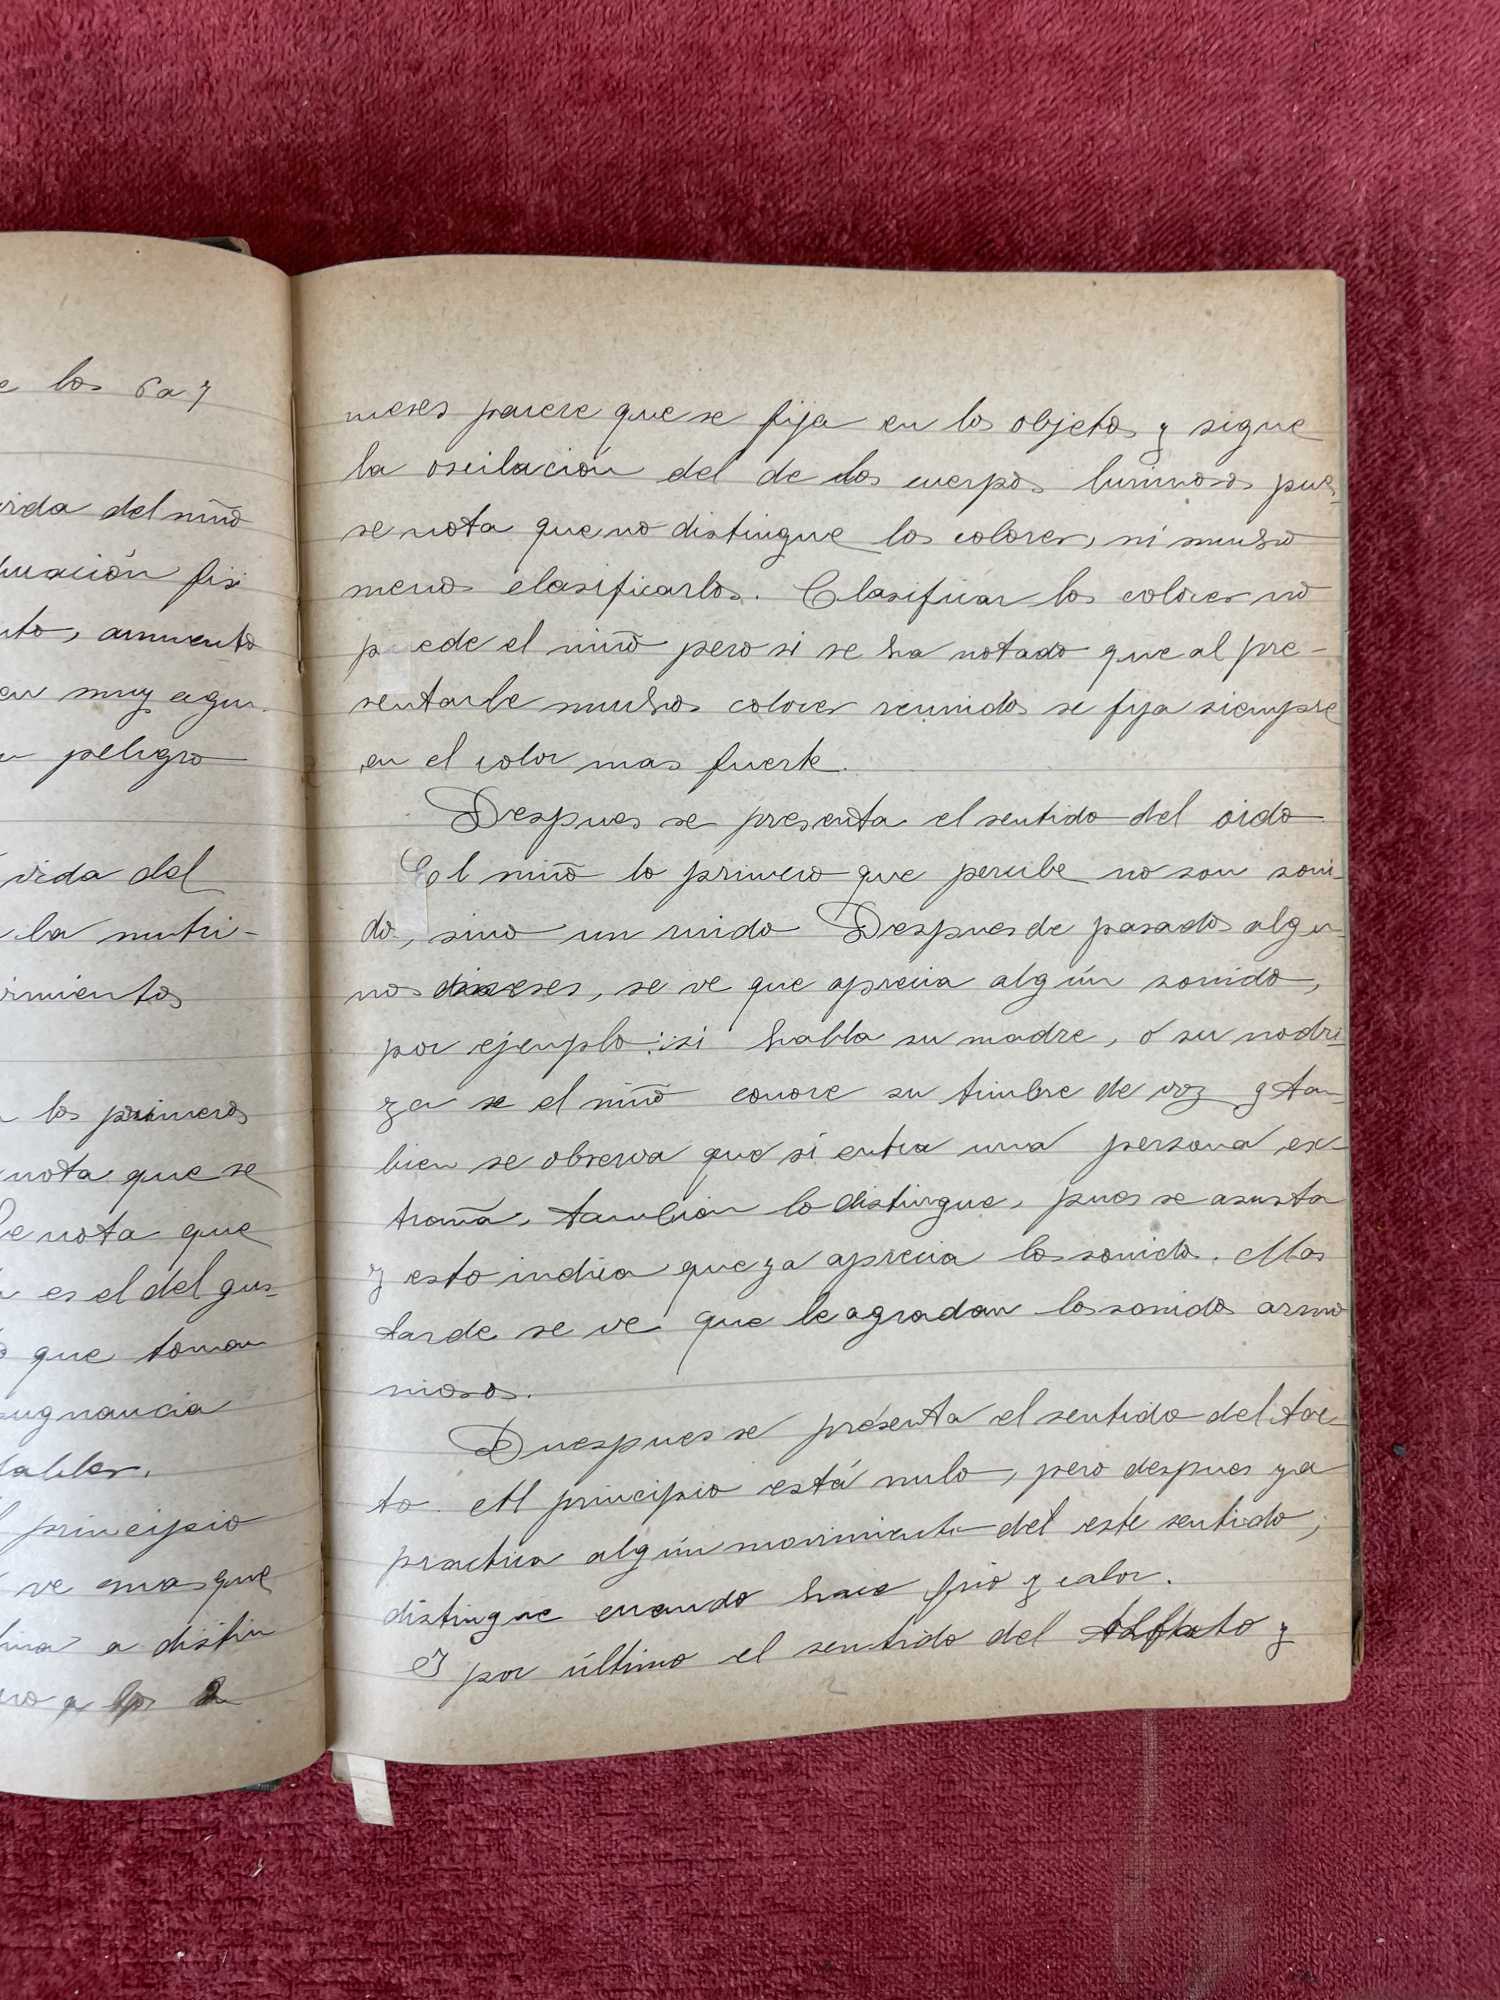 e los 6 a 7
vida del niño
fisi
nto, aumento
en muy agu
peligro
vida del
la nutri-
vimientos
los primeros
nota que se
Se nota que
es el del gus-
que toman
pugnancia
dables.
principio
ve mas que
a distin
a los 2
meses parece que se fija en los objetos y sigue
la oscilación del de los cuerpos luminosos pues
se nota que no distingue los colores, ni mucho
menos clasificarlos. Clasificar los colores no
puede el niño pero si se ha notado que al pre-
sentarle muchos colores reunidos se fija siempre
en el color mas fuerte.
Despues se presenta el sentido del oido
El niño lo primero que percibe no son soni-
do, sino un ruido Despues de pasados algu-
nos meses, se ve que aprecia algún sonido,
por ejemplo: si habla su madre, ó su nodri-
za se el niño conoce su timbre de voz y tam-
bien se observa que si entra una persona ex-
traña, tambien lo distingue, pues se asusta
y esto indica que ya aprecia los sonidos. Mas
tarde se ve que le agradan los sonidos armo
niosos.
Duespues se presenta el sentido del tac-
to. Al principio está nulo, pero despues ya
practica algún movimiento del este sentido;
distingue cuando hace frio y calor.
Y por último el sentido del Olfato y
2